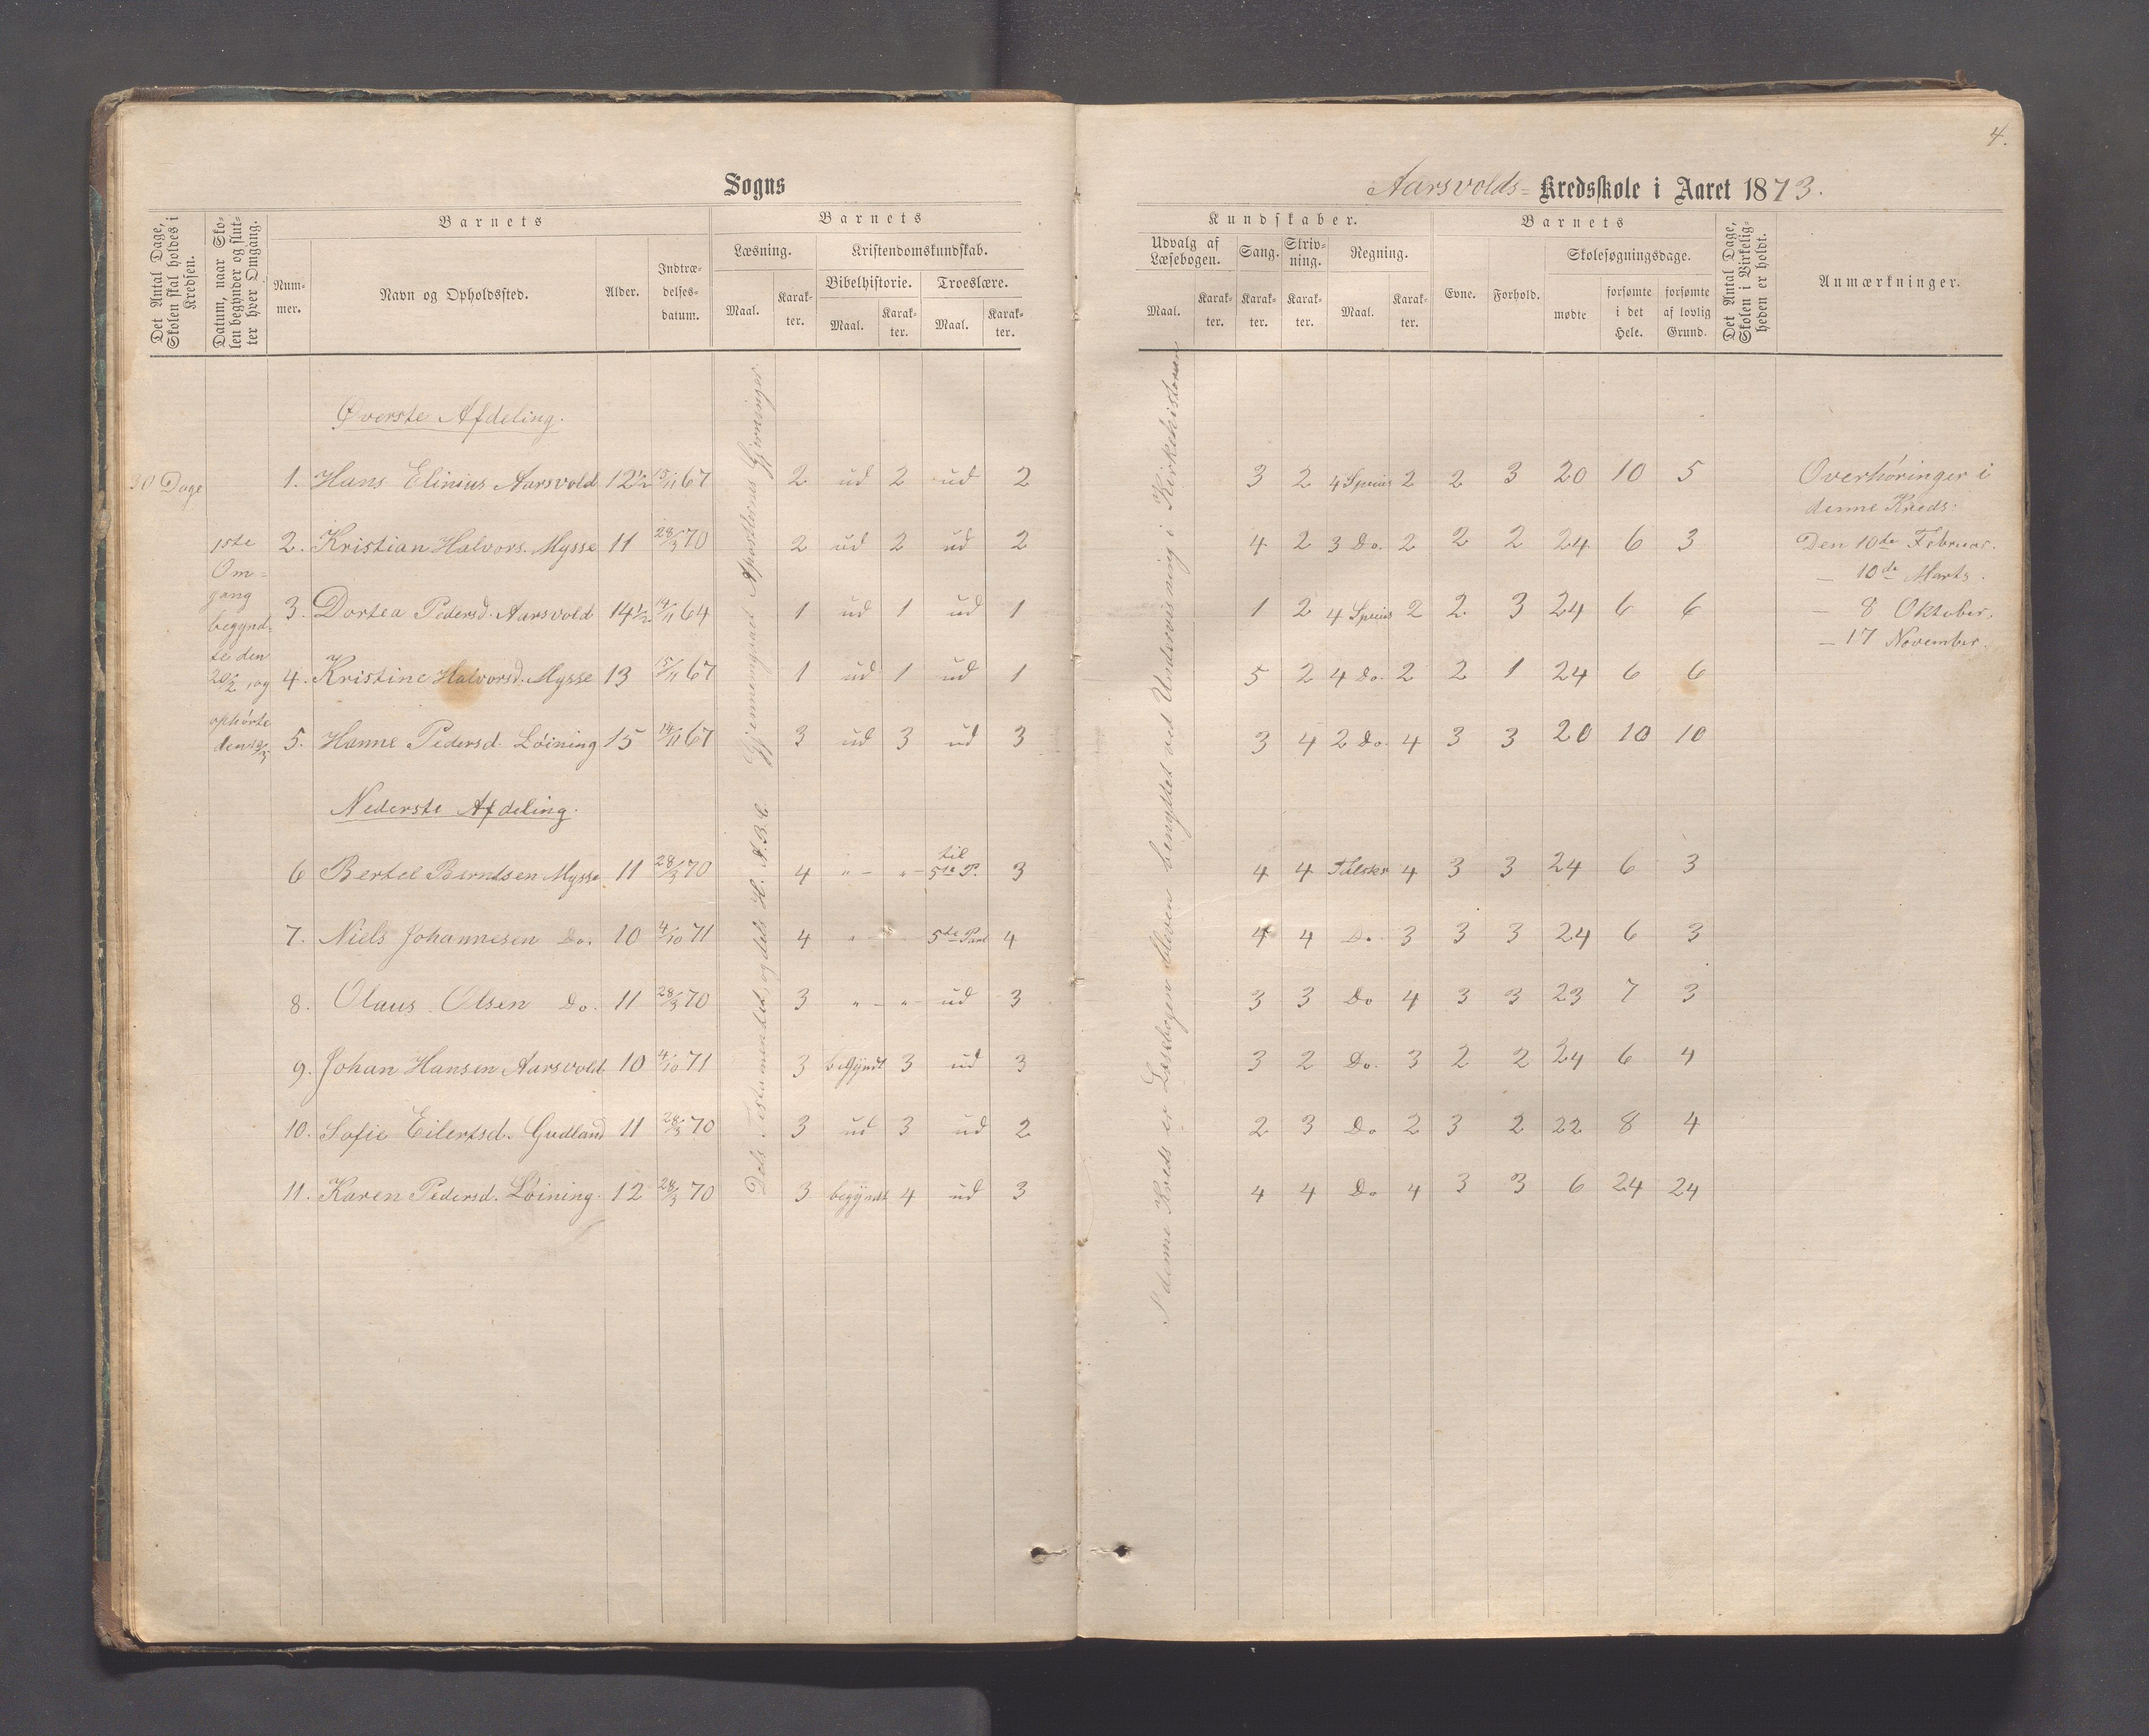 4.
Sogns
Aarsvolds- Kredsskole i Aaret 1873.
Det Antal Dage, Skolen skal holdes i Kredsen.
Datum, naar Skolen begynder og slutter hver Omgang.
Barnets
Nummer.
Navn og Opholdssted.
Alder.
Indtrædelsesdatum.
Barnets
Læsning.
Maal.
Karakter.
Kristendomskundskab.
Bibelhistorie.
Maal.
Karakter.
Troeslære.
Maal.
Karakter.
Kundskaber.
Udvalg af Læsebogen.
Maal.
Karakter.
Sang.
Karakter.
Skrivning.
Karakter.
Regning.
Maal.
Karakter.
Barnets
Evne.
Forhold.
Skolesøgningsdage.
mødte
forsømte i det Hele.
forsømte af lovlig Grund.
Det Antal Dage, Skolen i Virkeligheden er holdt.
Anmærkninger.
30 Dage
1ste
Om-
gang
begynd-
te den
20/2, og
ophørte
den 29/3
Gjennemgaaet Apostlernes Gjerninger
Dels Testamentet, og dels H. A.B.C.
I denne Kreds er Læsebogen bleven benyttet ved Undervisning i Kirkehistorien
Øverste Afdeling.
1. Hans Elinius Aarsvold 12½ 15/11 67 2 ud 2 ud 2 3 2 4 Species 2 2 3 20 10 5
2. Kristian Halvors. Mysse 11 28/3 70 2 ud 2 ud 2 4 2 3 Do. 2 2 2 24 6 3
3. Dortea Pedersd. Aarsvold 14½ 14/11 64 1 ud 1 ud 1 1 2 4 Species 2 2 3 24 6 6
4. Kristine Halvorsd. Mysse 13 15/11 67 1 ud 1 ud 1 5 2 4 Do. 2 2 1 24 6 6
5. Hanne Pedersd. Löining 15 14/11 67 3 ud 3 ud 3 3 4 2 Do. 4 3 3 20 10 10
Nederste Afdeling.
6 Bertel Berntsen Mysse 11 28/3 70 4 " - " - til 5te P. 3 4 4 4 3 3 24 6 3
7. Niels Johannesen Do. 10 4/10 71 4 " - 5te Part 4 4 4 Do. 3 3 3 24 6 3
8. Olaus Olsen Do. 11 28/3 70 3 " - " - ud 3 3 3 Do 4 3 3 23 7 3
9. Johan Hansen Aarsvold 10 4/10 71 3 begyndt 3 ud 3 3 2 Do. 3 2 2 24 6 4
10. Sofie Eilertsd. Gudland 11 28/3 70 3 ud 3 ud 2 2 3 Do 2 3 2 22 8 4
11. Karen Pedersd. Löining. 12 28/3 70 3 begyndt 4 ud 3 4 4 Do 4 3 3 6 24 24
Overhøringer i
denne Kreds:
Den 10de Februar.
— 10de Marts.
— 8 Oktober.
— 17 November.